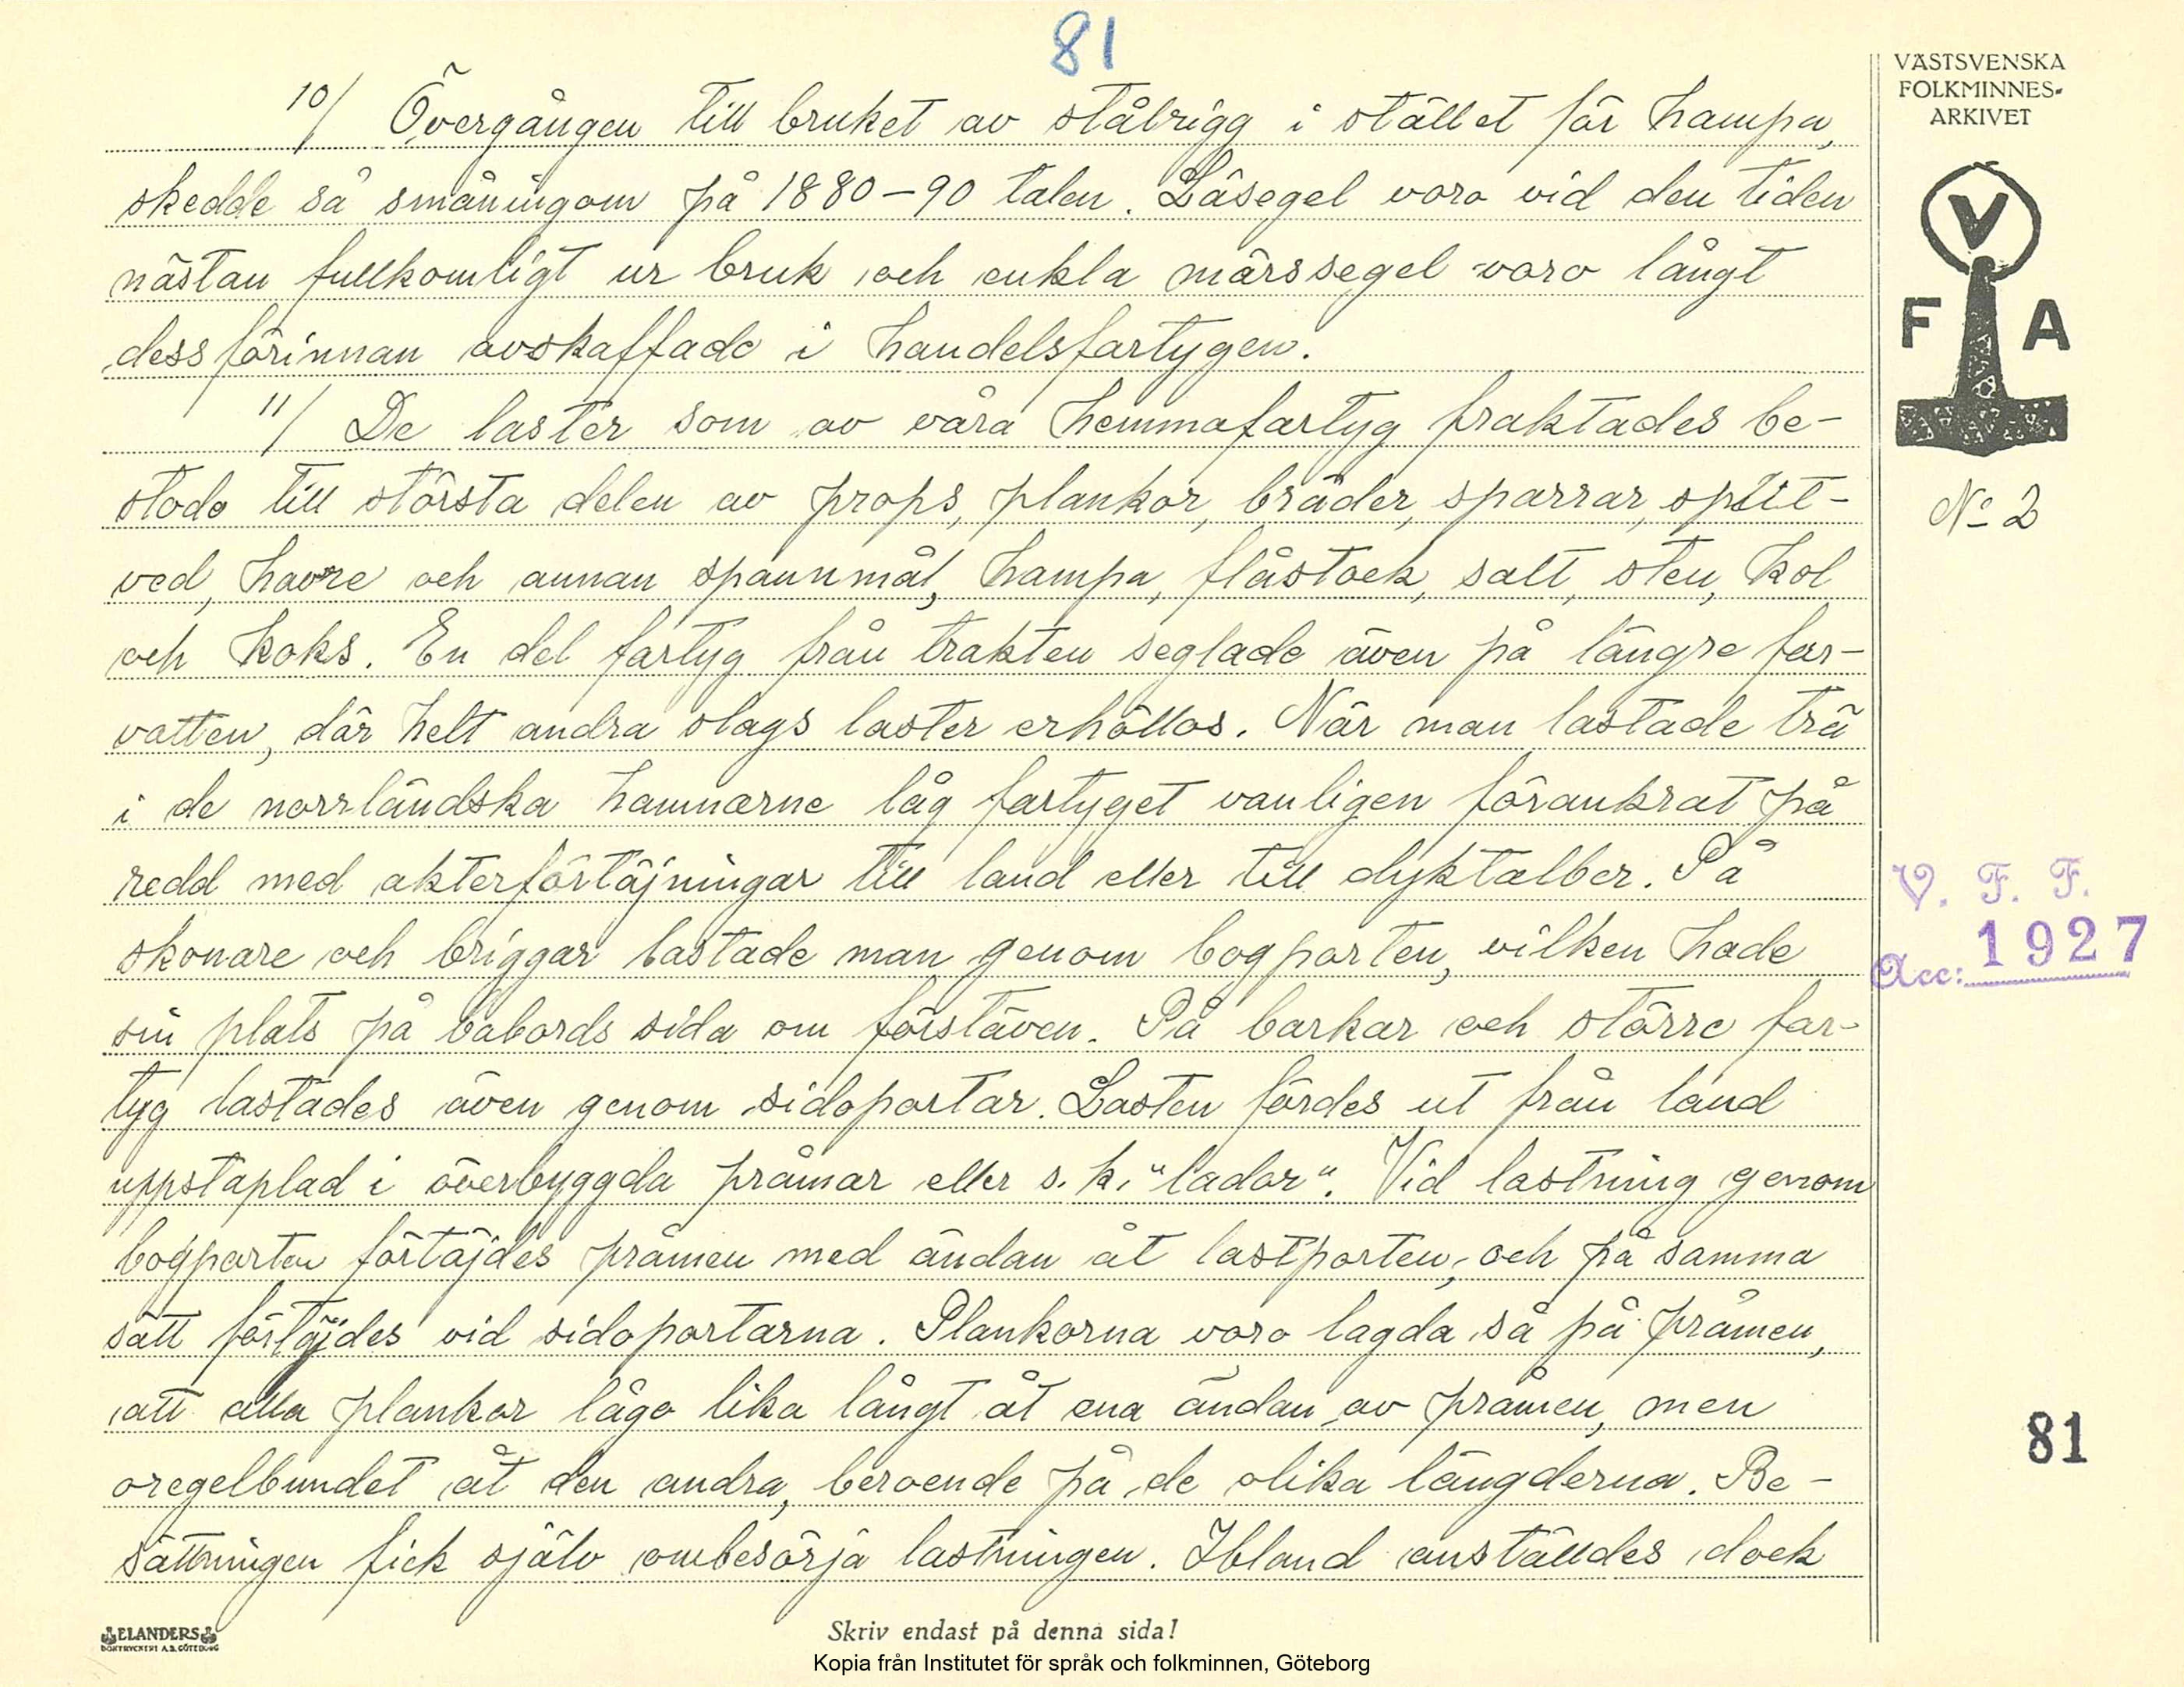 81
VÄSTSVENSKA
FOLKMINNES-
ARKIVET
V
F A
No 2
10/ Övergången till bruket av stålrigg i stället för hampa,
skedde så småningom på 1880-90 talen. Läsegel voro vid den tiden
nästan fullkomligt ur bruk och enkla märssegel voro långt
dessförinnan avskaffade i handelsfartygen.
11/ De laster som av våra hemmafartyg fraktades be-
stodo till största delen av props, plankor, bräder, sparrar, split-
ved, havre och annan spannmål, hampa, flåstock, salt, sten, kol
och koks. En del fartyg från trakten seglade även på längre far-
vatten, där helt andra slags laster erhöllos. När man lastade trä
i de norrländska hamnarne låg fartyget vanligen förankrat på
redd med akterförtöjningar till land eller till dyktalber. På
skonare och briggar lastade man genom bogporten, vilken hade
sin plats på babords sida om förstäven. På barkar och större far-
tyg lastades även genom sidoportar. Lasten fördes ut från land
uppstaplad i överbyggda pråmar eller s. k. "lador". Vid lastning genom
bogporten förtöjdes pråmen med ändan åt lastporten, och på samma
sätt förtöjdes vid sidoportarna. Plankorna voro lagda så på pråmen,
att alla plankor lågo lika långt åt ena ändan av pråmen, men
oregelbundet åt den andra, beroende på de olika längderna. Be-
sättningen fick själv ombesörja lastningen. Ibland anställdes dock
V. F. F.
Acc: 1927
81
ELANDERS
BOKTRYCKERI A.B. GÖTEBORG
Skriv endast på denna sida!
Kopia från Institutet för språk och folkminnen, Göteborg